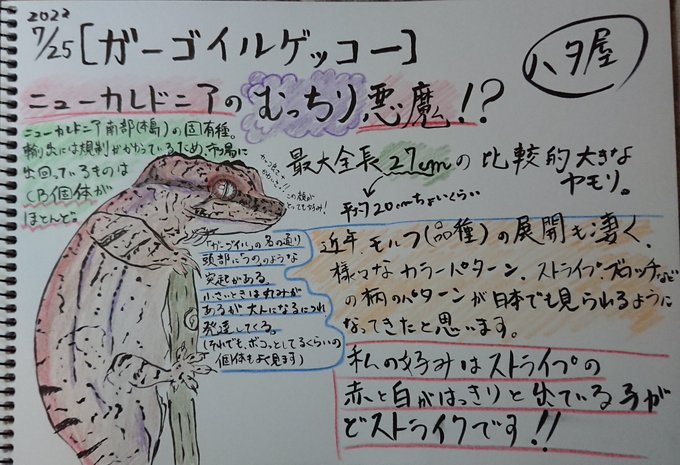 2022
7/25 [ガーゴイルゲッコー]
ハタ屋
ニューカレドニアのむっちり悪魔!?
ニューカレドニア南部(本島)の固有種。
輸出には規制がかかっているため、市場に
出回っているものは
CB個体が
ほとんど。
最大全長27cmの比較的大きな
ヤモリ。
平均20cmちょいくらい
この顔が
とっても好み!
「ガーゴイル」の名の通り
頭部にツノのような
突起がある。
小さいときは丸みが
あるが大人になるにつれ
発達してくる。
(それでも、ポコッとしてるくらいの
個体もよく見ます)
近年、モルフ(品種)の展開も凄く、
様々なカラーパターン、ストライプ・ブロッチなど
の柄のパターンが日本でも見られるように
なってきたと思います。
私の好みはストライプの
赤と白がはっきりと出ている子が
どストライクです!!